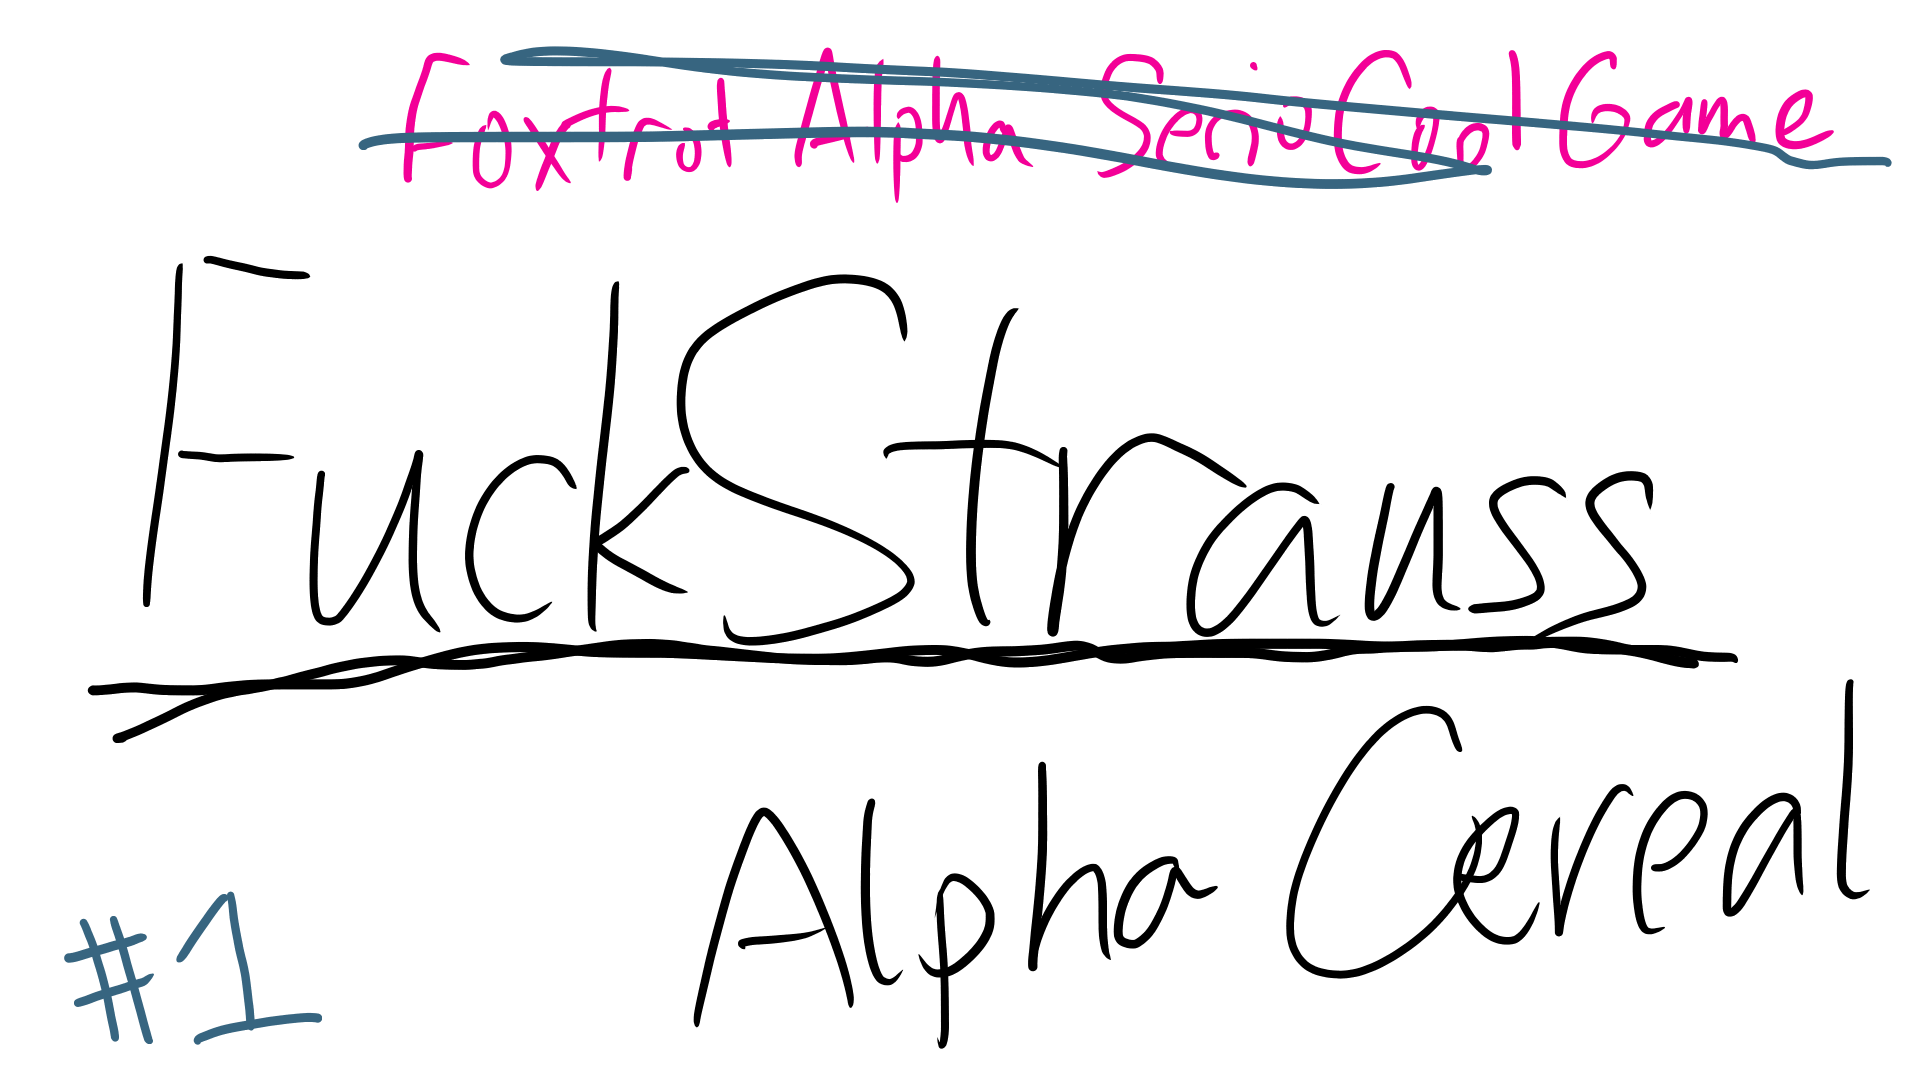 Foxtrot Alpha Serio Cool Game
FuckStrauss
Alpha Cereal
#1